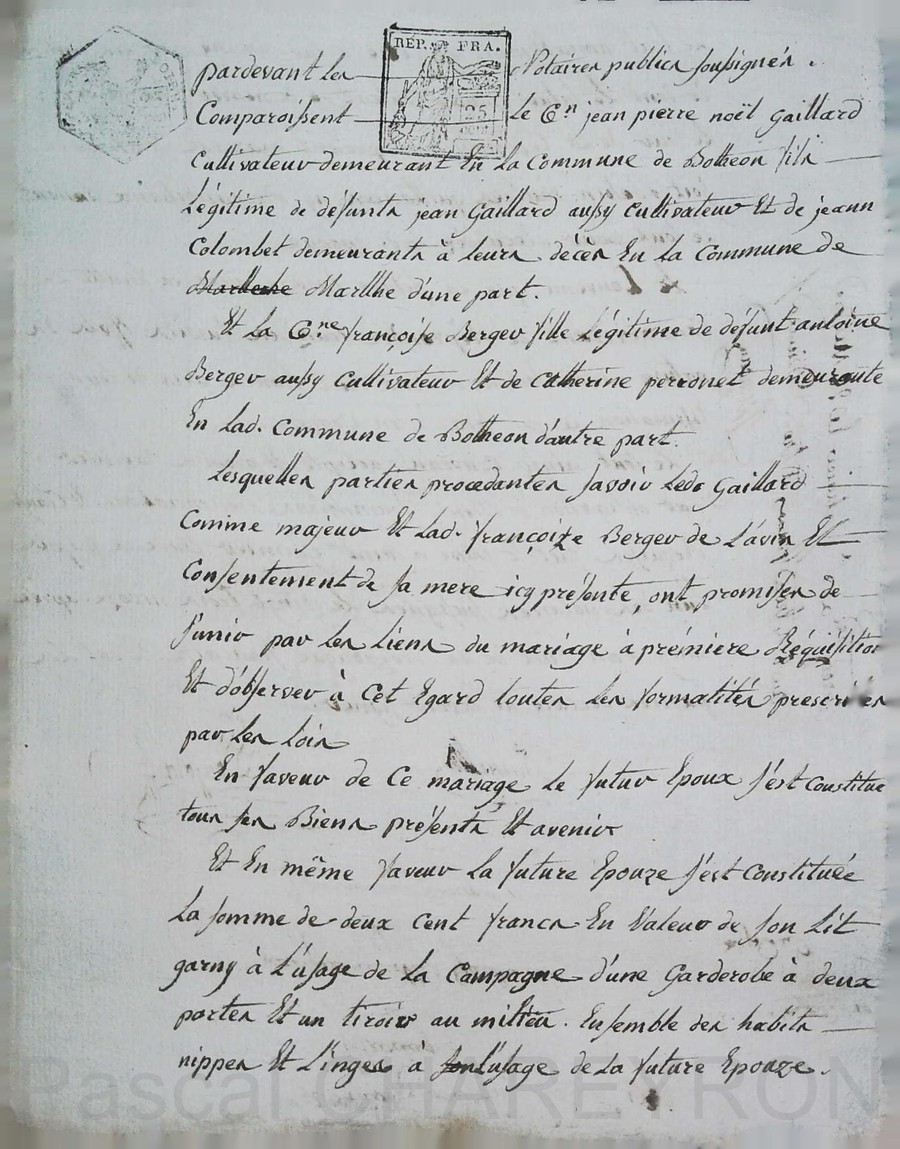 REP. FRA.
25
pardevant les Notaires publics soussignés .
Comparoissent le C.en jean pierre noël gaillard
Cultivateur demeurant En la Commune de Botheon fils
Légitime de défunts jean Gaillard aussy cultivateur Et de jeann
Colombet demeurants à leurs décès En la Commune de
Marllhe d'une part.
Et la C.ne françoise Berger fille Légitime de défunt antoine
Berger aussy Cultivateur Et de Catherine perronet demeurante
En lad. Commune de Botheon d'autre part.
Lesquelles parties procedantes savoir Led. Gaillard
Comme majeur Et Lad. françoise Berger de L'avis Et
Consentement de sa mere icy présente, ont promises de
s'unir par les liens du mariage à prémiere Réquisition
Et d'observer à Cet Egard toutes les formalités prescrites
par les loix
En faveur de Ce mariage Le futur Epoux s'est Constitué
tous ses Biens présents Et avenir
Et En même faveur La future Epouze s'est Constituée
La somme de deux Cent francs En Valeur de son Lit
garny à l'usage de la Campagne d'une Garderobe à deux
portes Et un tiroir au milieu. Ensemble des habits
nippes Et Linges à l'usage de la future Epouze.
Pascal CHAREYRON